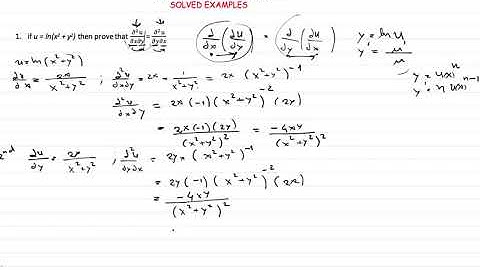 SOLVED EXAMPLES
1. If u = ln(x² + y²) then prove that ∂²u/∂x∂y = ∂²u/∂y∂x
∂/∂x (∂u/∂y) = ∂/∂y (∂u/∂x)
y = ln u
y' = u'/u
y = u(x)ⁿ
y' = n u(x)ⁿ⁻¹
u = ln(x² + y²)
∂u/∂x = 2x/(x² + y²) ; ∂²u/∂x∂y = 2x · 1/(x² + y²) = 2x (x² + y²)⁻¹
∂²u/∂x∂y = 2x (-1) (x² + y²)⁻² (2y)
= 2x(-1)(2y)/(x² + y²)² = -4xy/(x² + y²)²
2nd ∂u/∂y = 2x/(x² + y²) ; ∂²u/∂y∂x = 2y x (x² + y²)⁻¹
= 2y (-1) (x² + y²)⁻² (2x)
= -4xy/(x² + y²)²